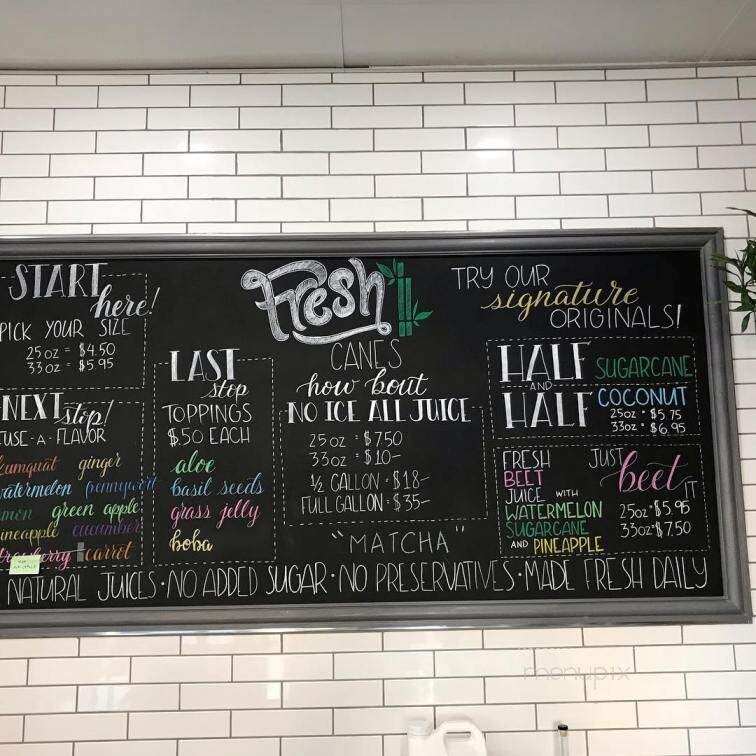 START
here!
PICK YOUR SIZE
25oz = $4.50
33oz = $5.95
NEXT stop!
FUSE-A-FLAVOR
kumquat ginger
watermelon pennywort
lemon green apple
pineapple cucumber
strawberry carrot
LAST
stop
TOPPINGS
$.50 EACH
aloe
basil seeds
grass jelly
boba
Fresh
CANES
how bout
NO ICE ALL JUICE
25oz = $7.50
33oz = $10-
½ GALLON = $18-
FULL GALLON = $35-
"MATCHA"
TRY OUR
signature
ORIGINALS!
HALF SUGARCANE
AND
HALF COCONUT
25oz • $5.75
33oz • $6.95
FRESH
BEET
JUICE WITH
WATERMELON
SUGARCANE
AND PINEAPPLE
JUST
beet IT
25oz • $5.95
33oz • $7.50
NATURAL JUICES • NO ADDED SUGAR • NO PRESERVATIVES • MADE FRESH DAILY
menupix